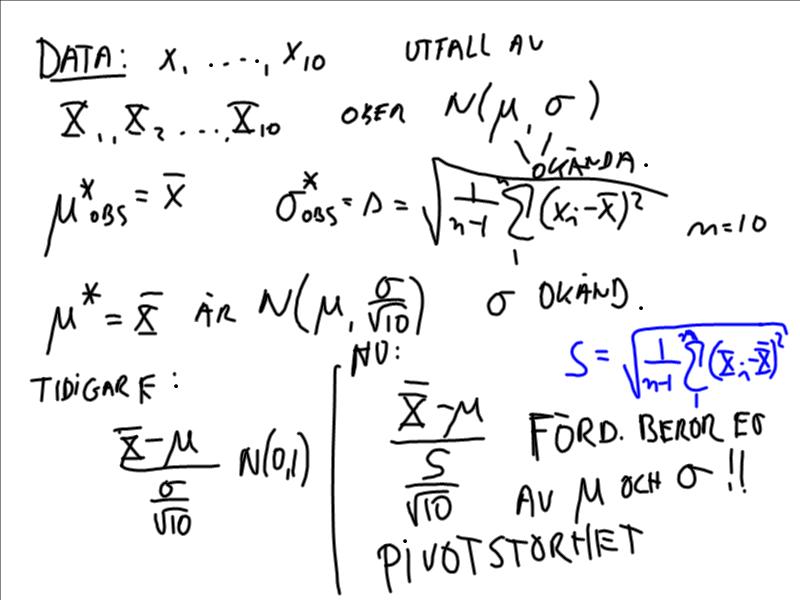 DATA: x₁, ...., x₁₀ UTFALL AV
X̅₁, X̅₂ ..., X̅₁₀ OBER N(μ, σ)
OKÄNDA.
μ*OBS = x̅ σ*OBS = s = √(1/(n-1) Σ₁ⁿ (xᵢ-x̅)²) n=10
μ* = X̅ ÄR N(μ, σ/√10) σ OKÄND.
S = √(1/(n-1) Σ₁ⁿ (Xᵢ-X̅)²)
TIDIGARE:
(X̅-μ)/(σ/√10) N(0,1)
NU:
(X̅-μ)/(S/√10) FÖRD. BEROR EJ
AV μ OCH σ !!
PIVOTSTORHET